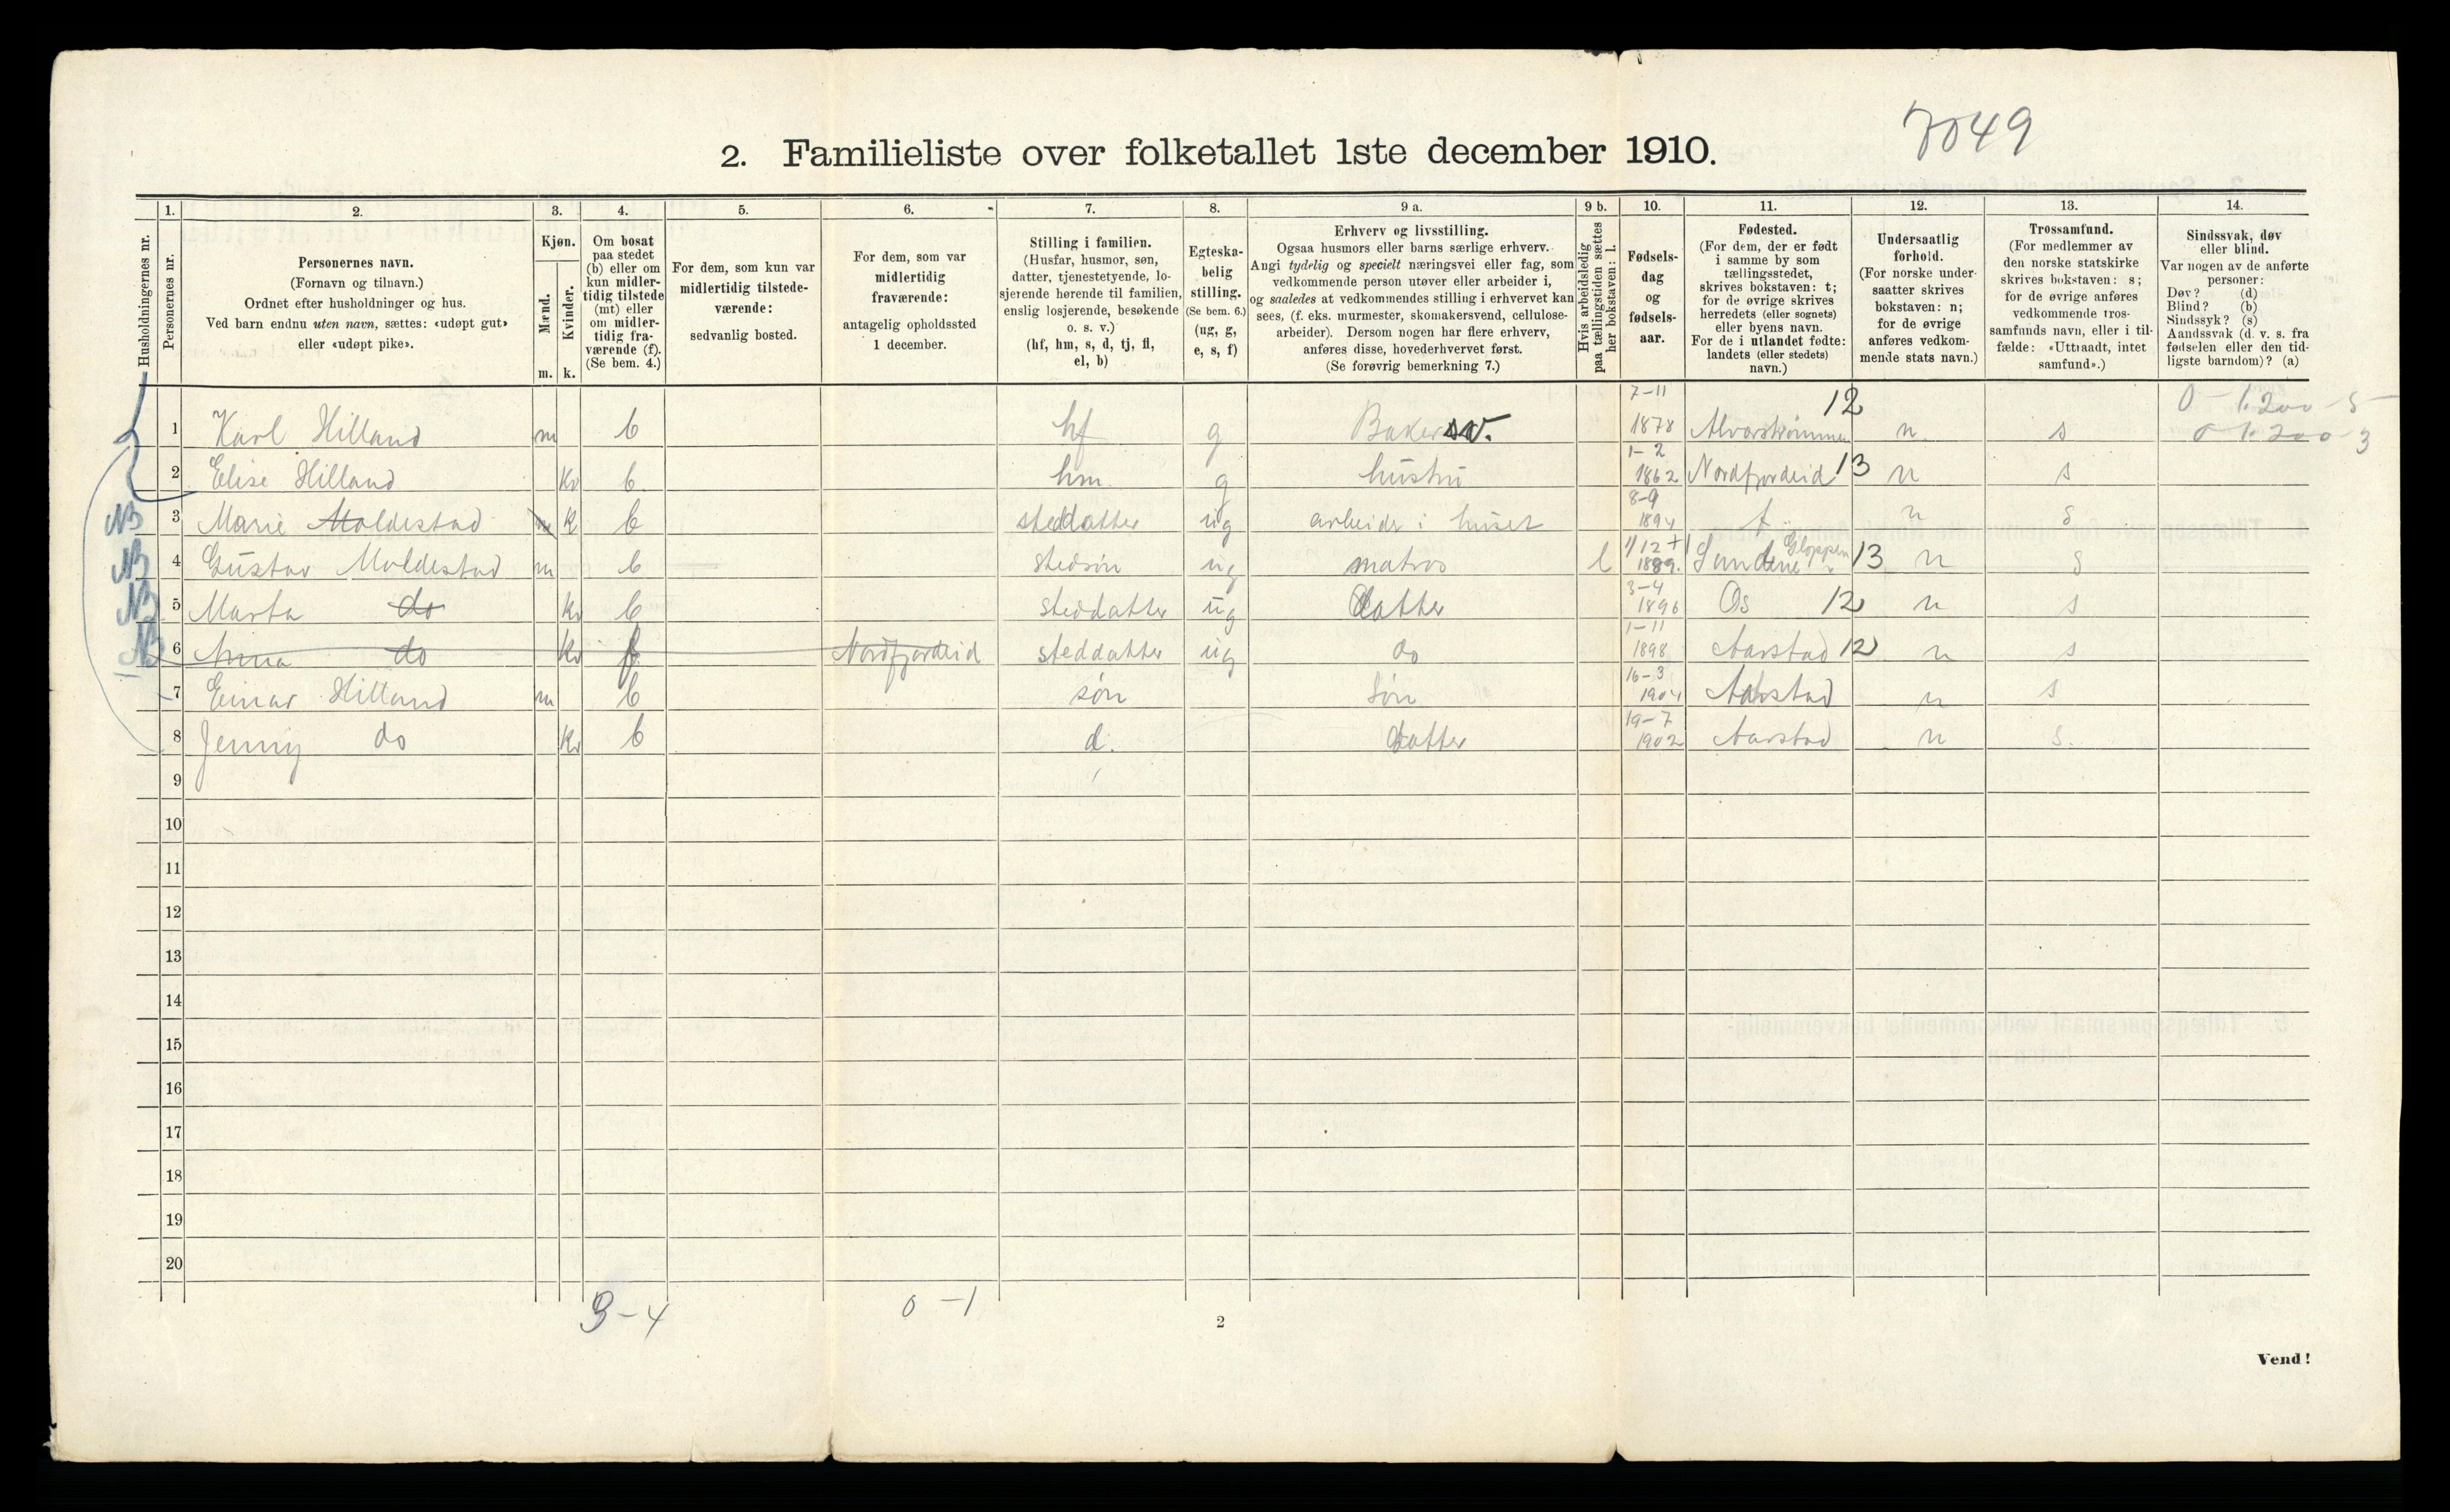 7049
2. Familieliste over folketallet 1ste december 1910.
1. 2. 3. 4. 5. 6. 7. 8. 9 a. 9 b. 10. 11. 12. 13. 14.
Husholdningernes nr.
Personernes nr.
Personernes navn.
(Fornavn og tilnavn.)
Ordnet efter husholdninger og hus.
Ved barn endnu uten navn, sættes: «udøpt gut»
eller «udøpt pike».
Kjøn.
Mænd.
Kvinder.
m. k.
Om bosat
paa stedet
(b) eller om
kun midler-
tidig tilstede
(mt) eller
om midler-
tidig fra-
værende (f).
(Se bem. 4.)
For dem, som kun var
midlertidig tilstede-
værende:
sedvanlig bosted.
For dem, som var
midlertidig
fraværende:
antagelig opholdssted
1 december.
Stilling i familien.
(Husfar, husmor, søn,
datter, tjenestetyende, lo-
sjerende hørende til familien,
enslig losjerende, besøkende
o. s. v.)
(hf, hm, s, d, tj, fl,
el, b)
Egteska-
belig
stilling.
(Se bem. 6.)
(ug, g,
e, s, f)
Erhverv og livsstilling.
Ogsaa husmors eller barns særlige erhverv.
Angi tydelig og specielt næringsvei eller fag, som
vedkommende person utøver eller arbeider i,
og saaledes at vedkommendes stilling i erhvervet kan
sees, (f. eks. murmester, skomakersvend, cellulose-
arbeider). Dersom nogen har flere erhverv,
anføres disse, hovederhvervet først.
(Se forøvrig bemerkning 7.)
Hvis arbeidsledig
paa tællingstiden sættes
her bokstaven: l.
Fødsels-
dag
og
fødsels-
aar.
Fødested.
(For dem, der er født
i samme by som
tællingsstedet,
skrives bokstaven: t;
for de øvrige skrives
herredets (eller sognets)
eller byens navn.
For de i utlandet fødte:
landets (eller stedets)
navn.)
Undersaatlig
forhold.
(For norske under-
saatter skrives
bokstaven: n;
for de øvrige
anføres vedkom-
mende stats navn.)
Trossamfund.
(For medlemmer av
den norske statskirke
skrives bokstaven: s;
for de øvrige anføres
vedkommende tros-
samfunds navn, eller i til-
fælde: «Uttraadt, intet
samfund».)
Sindssvak, døv
eller blind.
Var nogen av de anførte
personer:
Døv? (d)
Blind? (b)
Sindssyk? (s)
Aandssvak (d. v. s. fra
fødselen eller den tid-
ligste barndom)? (a)
0 - 1.200 - 5
0 1.200 - 3
1 Karl Hilland m b hf g Baker sv. 7-11 1878 Alvørstrømmen 12 n s
2 Elise Hilland Kv b. hm. g hustru 1-2 1862 Nordfjordeid 13 n s
NB 3 Marie Moldestad K b steddatter ug arbeide i huset 8-9 1894 t n s
NB 4 Gustav Moldestad m b stedsøn ug matros l 1/12 1889. Gloppen 13 n s
NB 5 Marta do Kv b steddatter ug datter 3-4 1896 Os 12 n s
NB 6 Anna do Kv f Nordfjordeid steddatter ug do 1-11 1898 Aarstad 12 n s
7 Einar Hilland m b søn søn 16-3 1904 Aarstad n s
8 Jenny do Kv b d. datter 19-7 1902 Aarstad n s.
9
10
11
12
13
14
15
16
17
18
19
20
3-4 0-1
2
Vend!